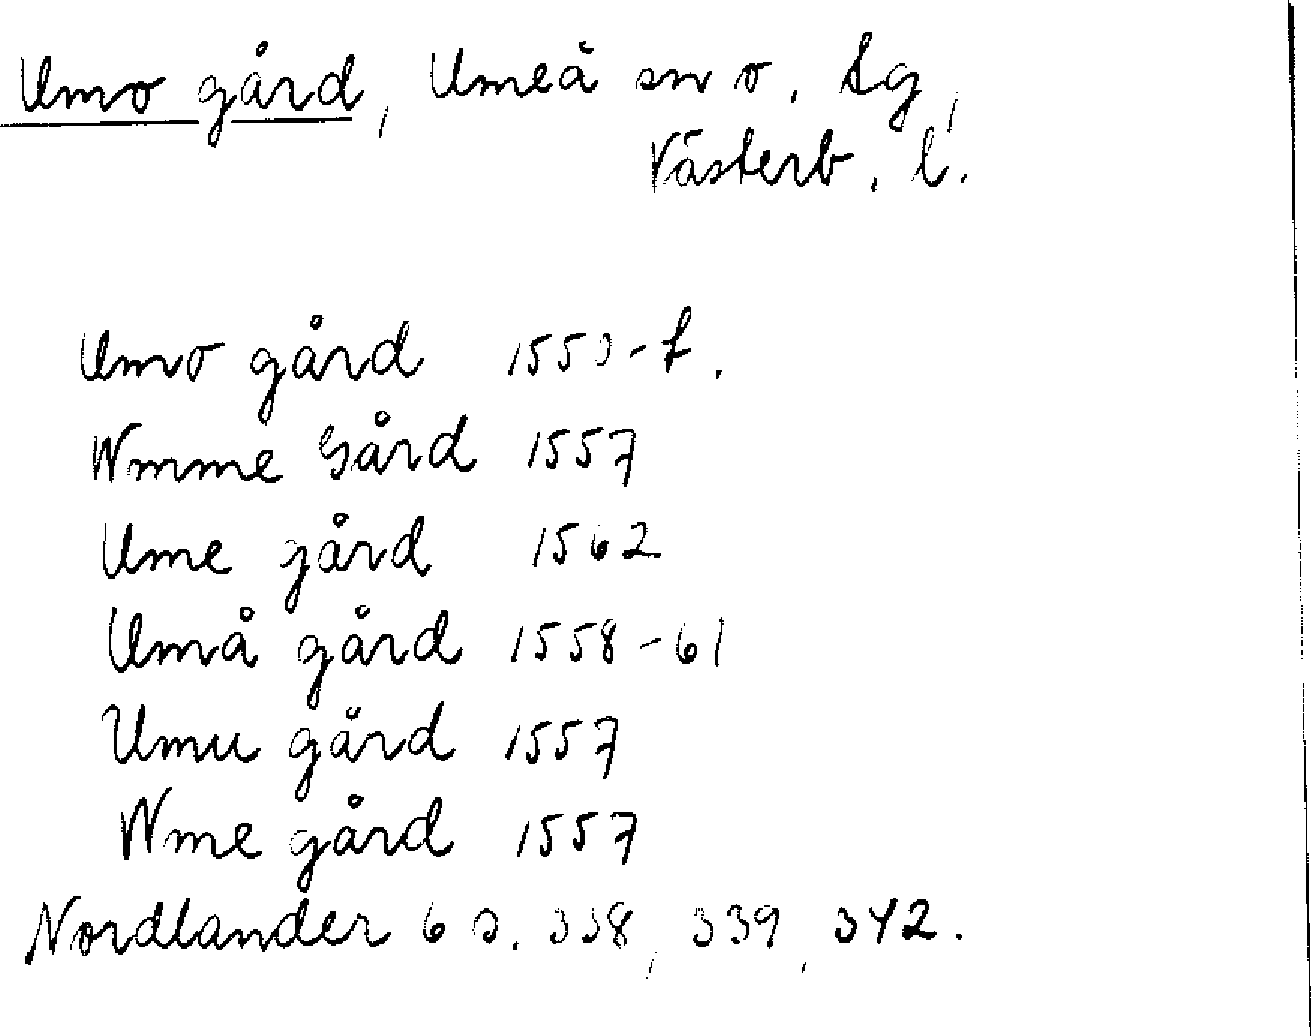 Umo gård, Umeå sn o. tg,
Västerb. l.
Umo gård 1550-t.
Wmme Gård 1557
Ume gård 1562
Umå gård 1558-61
Umu gård 1557
Wme gård 1557
Nordlander 6 s. 338, 339, 342.